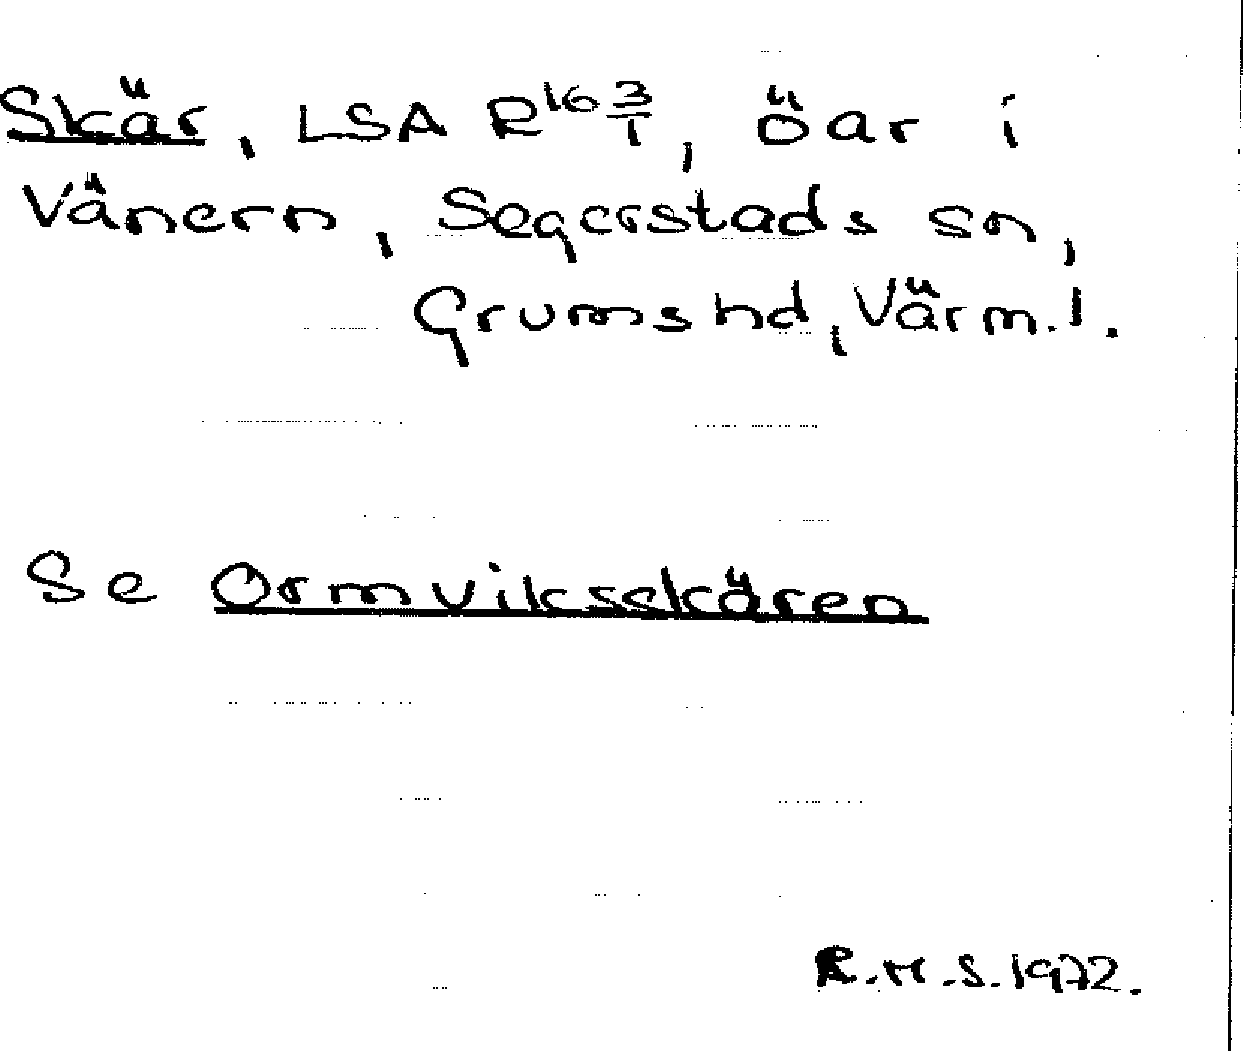 Skär, LSA R16 3/1, öar i
Vänern, Segerstads sn,
Grums hd, Värm.l.
Se Ormviksskären
R.M.S. 1972.